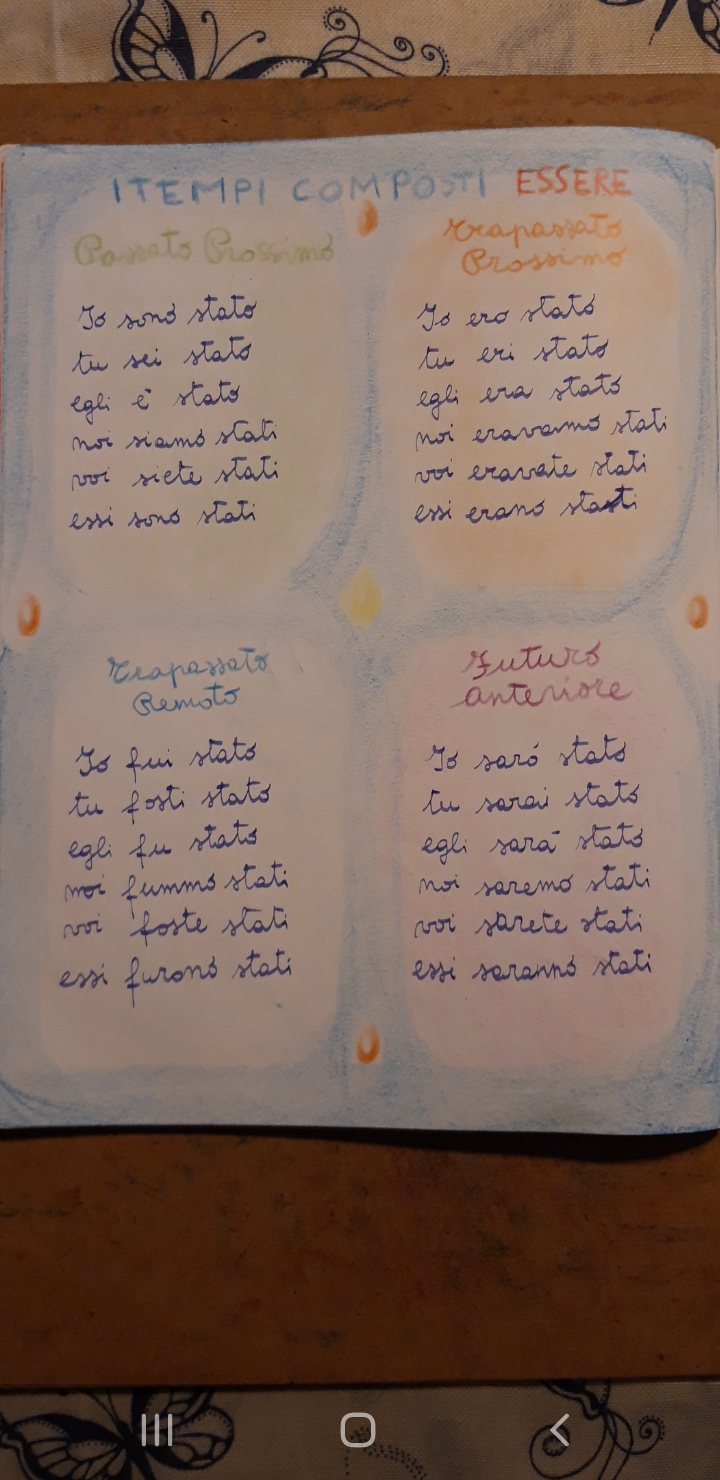 I TEMPI COMPOSTI ESSERE
Passato Prossimo
Io sono stato
tu sei stato
egli è stato
noi siamo stati
voi siete stati
essi sono stati
Trapassato
Prossimo
Io ero stato
tu eri stato
egli era stato
noi eravamo stati
voi eravate stati
essi erano stati
Trapassato
Remoto
Io fui stato
tu fosti stato
egli fu stato
noi fummo stati
voi foste stati
essi furono stati
Futuro
anteriore
Io saró stato
tu sarai stato
egli sará stato
noi saremo stati
voi sarete stati
essi saranno stati